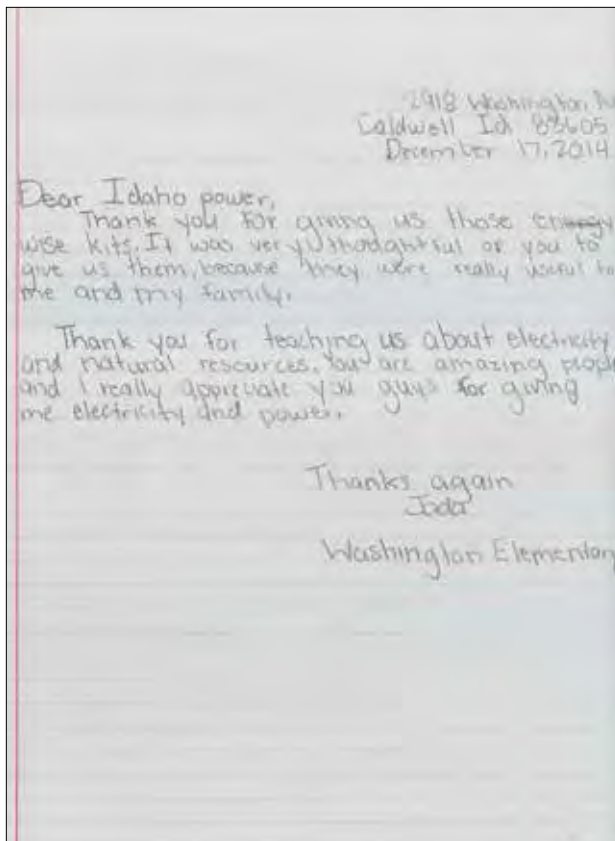 2918 Washington
Caldwell Id 83605
December 17, 2014
Dear Idaho power,
Thank you for giving us those energy
wise kits. It was very thoughtful of you to
give us them, because they were really useful to
me and my family.
Thank you for teaching us about electricity
and natural resources. You are amazing peopl
and I really appreciate you guys for giving
me electricity and power.
Thanks again
Jada
Washington Elementary